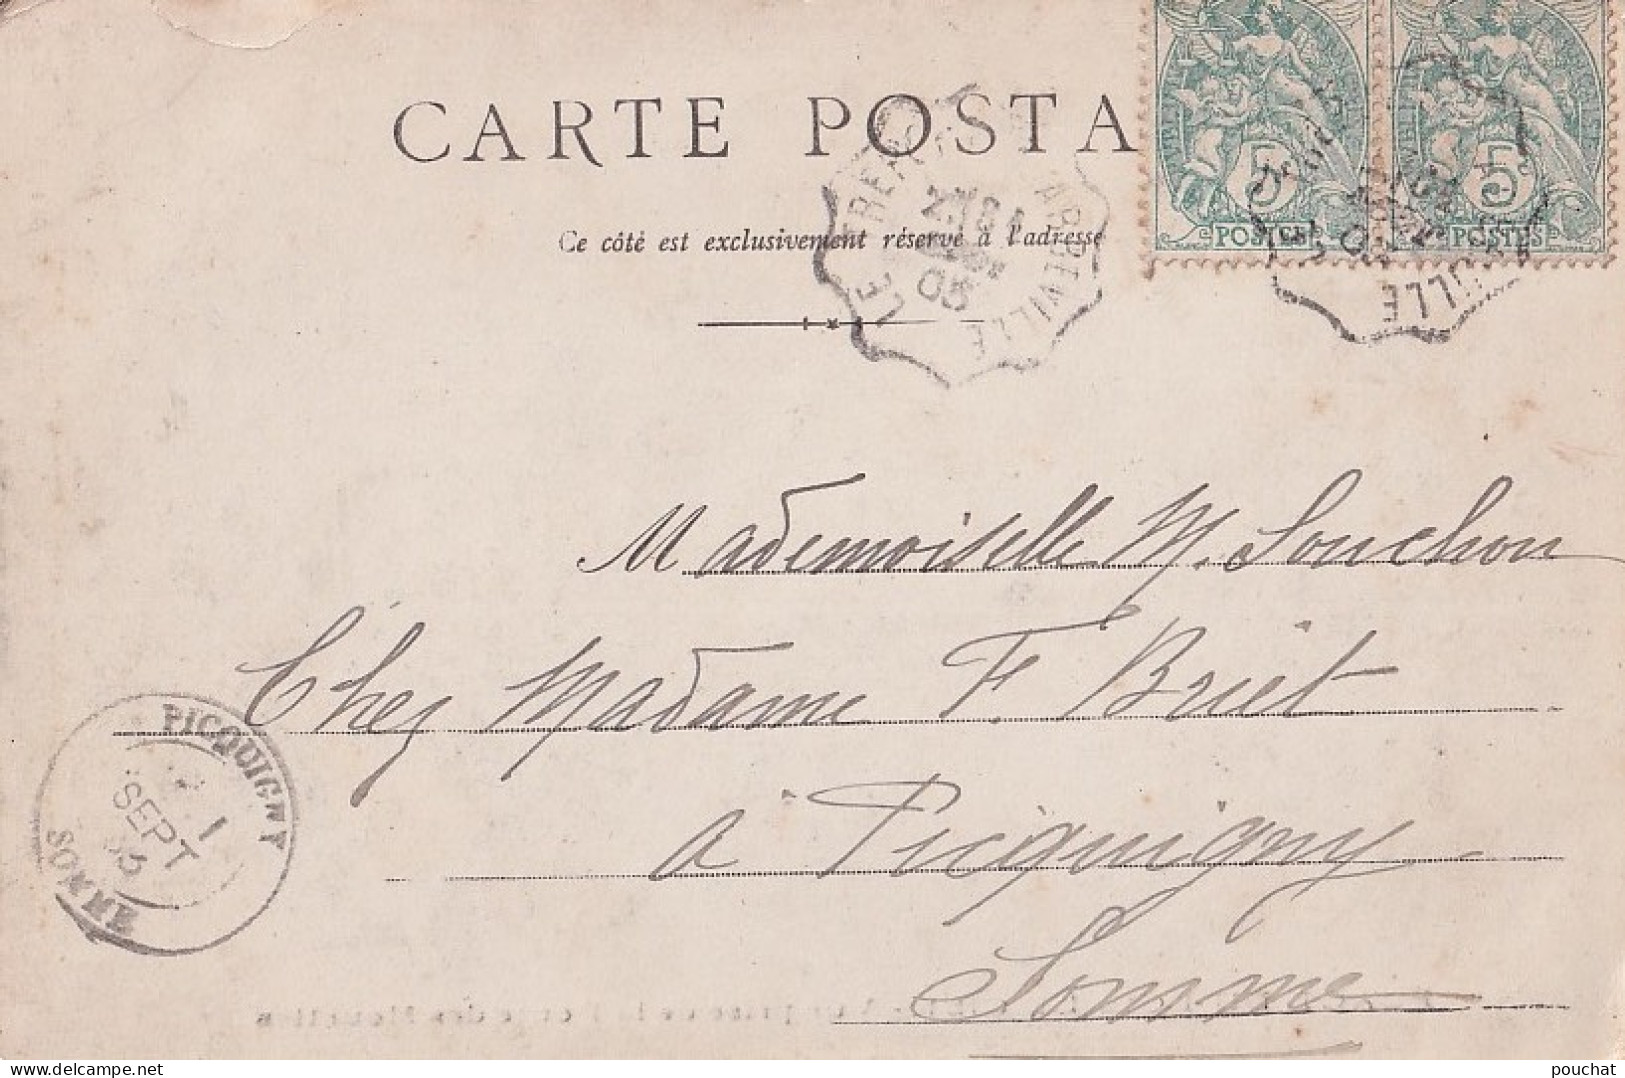 CARTE POSTA
Ce côté est exclusivement réservé à l'adresse
5 5
POSTES POSTES
LE TRE
05
ILLE
Mademoiselle M. Souchon
Chez Madame F. Briet
à Picquigny
Somme
PICQUIGNY
1
SEPT
SOMME
pouchat